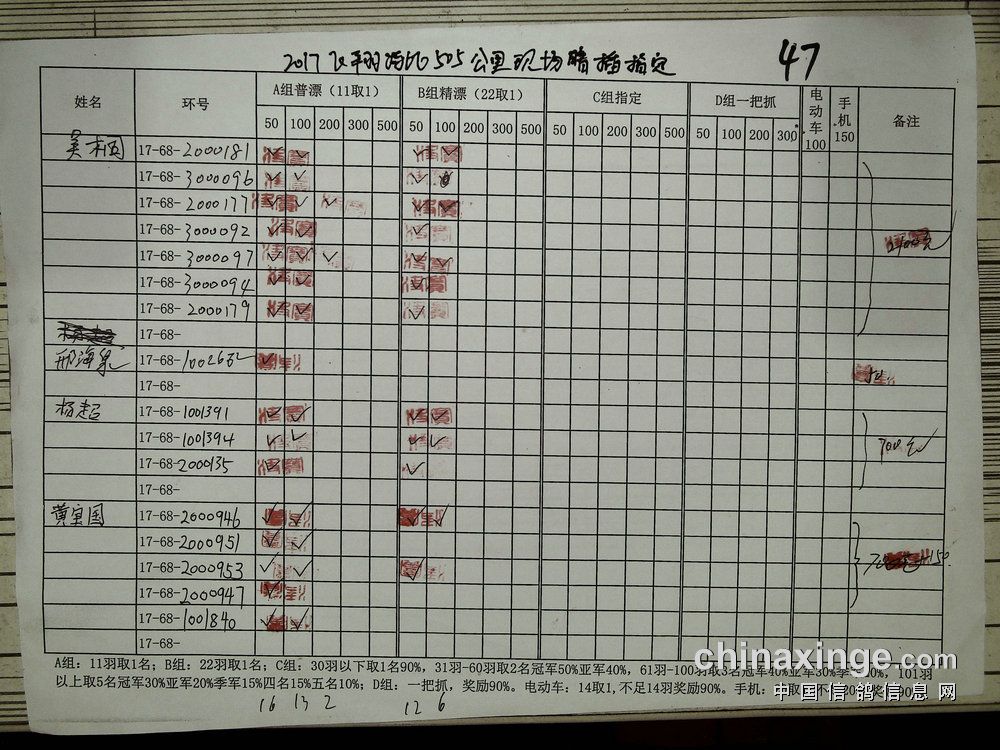 2017飞翔 505公里现场 插指定 47
姓名 环号 A组普漂（11取1） B组精漂（22取1） C组指定 D组一把抓 电动车100 手机150 备注
50 100 200 300 500 50 100 200 300 500 50 100 200 300 500 50 100 200 300
吴 17-68-2000181
17-68-3000096
17-68-2000177
17-68-3000092
17-68-3000097
17-68-3000094
17-68-2000179
17-68-
邢海 17-68-
17-68-
杨超 17-68-1001391
17-68-1001394 700元
17-68-2000135
17-68-
黄宝国 17-68-2000946
17-68-2000951
17-68-2000953
17-68-2000947
17-68-1001840
17-68-
A组：11羽取1名；B组：22羽取1名；C组：30羽以下取1名90%，31羽-60羽取2名冠军50%亚军40%，61羽-100羽取3名冠军40%亚军30%季军20%，101羽
以上取5名冠军30%亚军20%季军15%四名15%五名10%；D组：一把抓，奖励90%。电动车：14取1,不足14羽奖励90%。手机：
16 13 2 12 6
chinaxinge.com
中国信鸽信息网